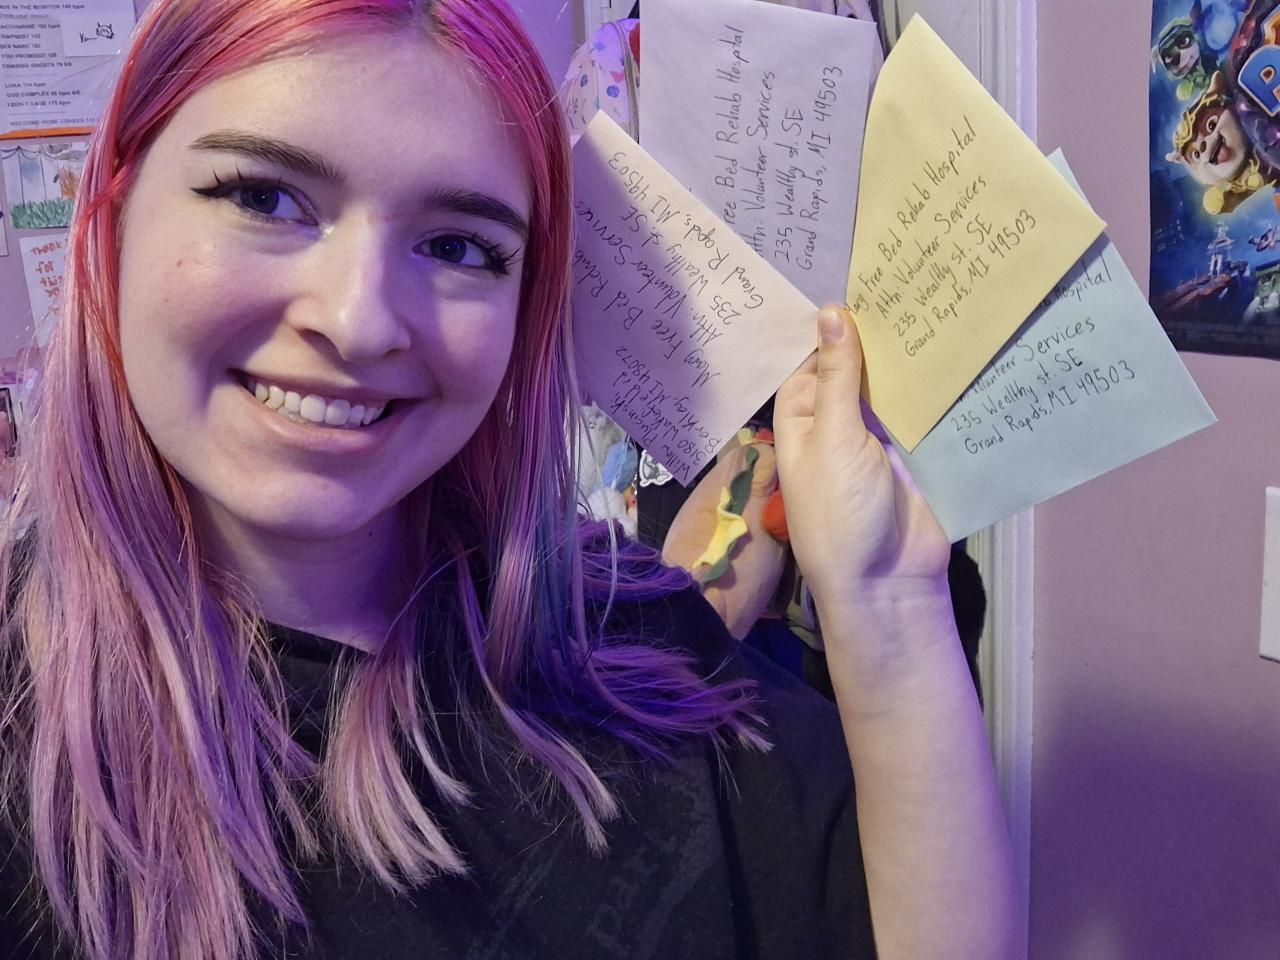 E IN THE MONITOR 140 bpm
SACCHARINE 162 bpm
TRAPNEST 102
SEX MANIC 162
YOU PROMISED 128
CHASING GHOSTS 79 6/8
LUNA 114 bpm
GOD COMPLEX 60 bpm 6/8
I DON'T CARE 175 bpm
WELCOME HOME
for
Free Bed Rehab Hospital
Attn: Volunteer Services
235 Wealthy st. SE
Grand Rapids, MI 49503
Mary Free Bed Rehab
Attn: Volunteer Services
235 Wealthy St. SE
Grand Rapids, MI 49503
Willow
3180
Berkley, MI 48072
Mary Free Bed Rehab Hospital
Attn: Volunteer Services
235 Wealthy st. SE
Grand Rapids, MI 49503
Hospital
Volunteer Services
235 Wealthy st. SE
Grand Rapids, MI 49503